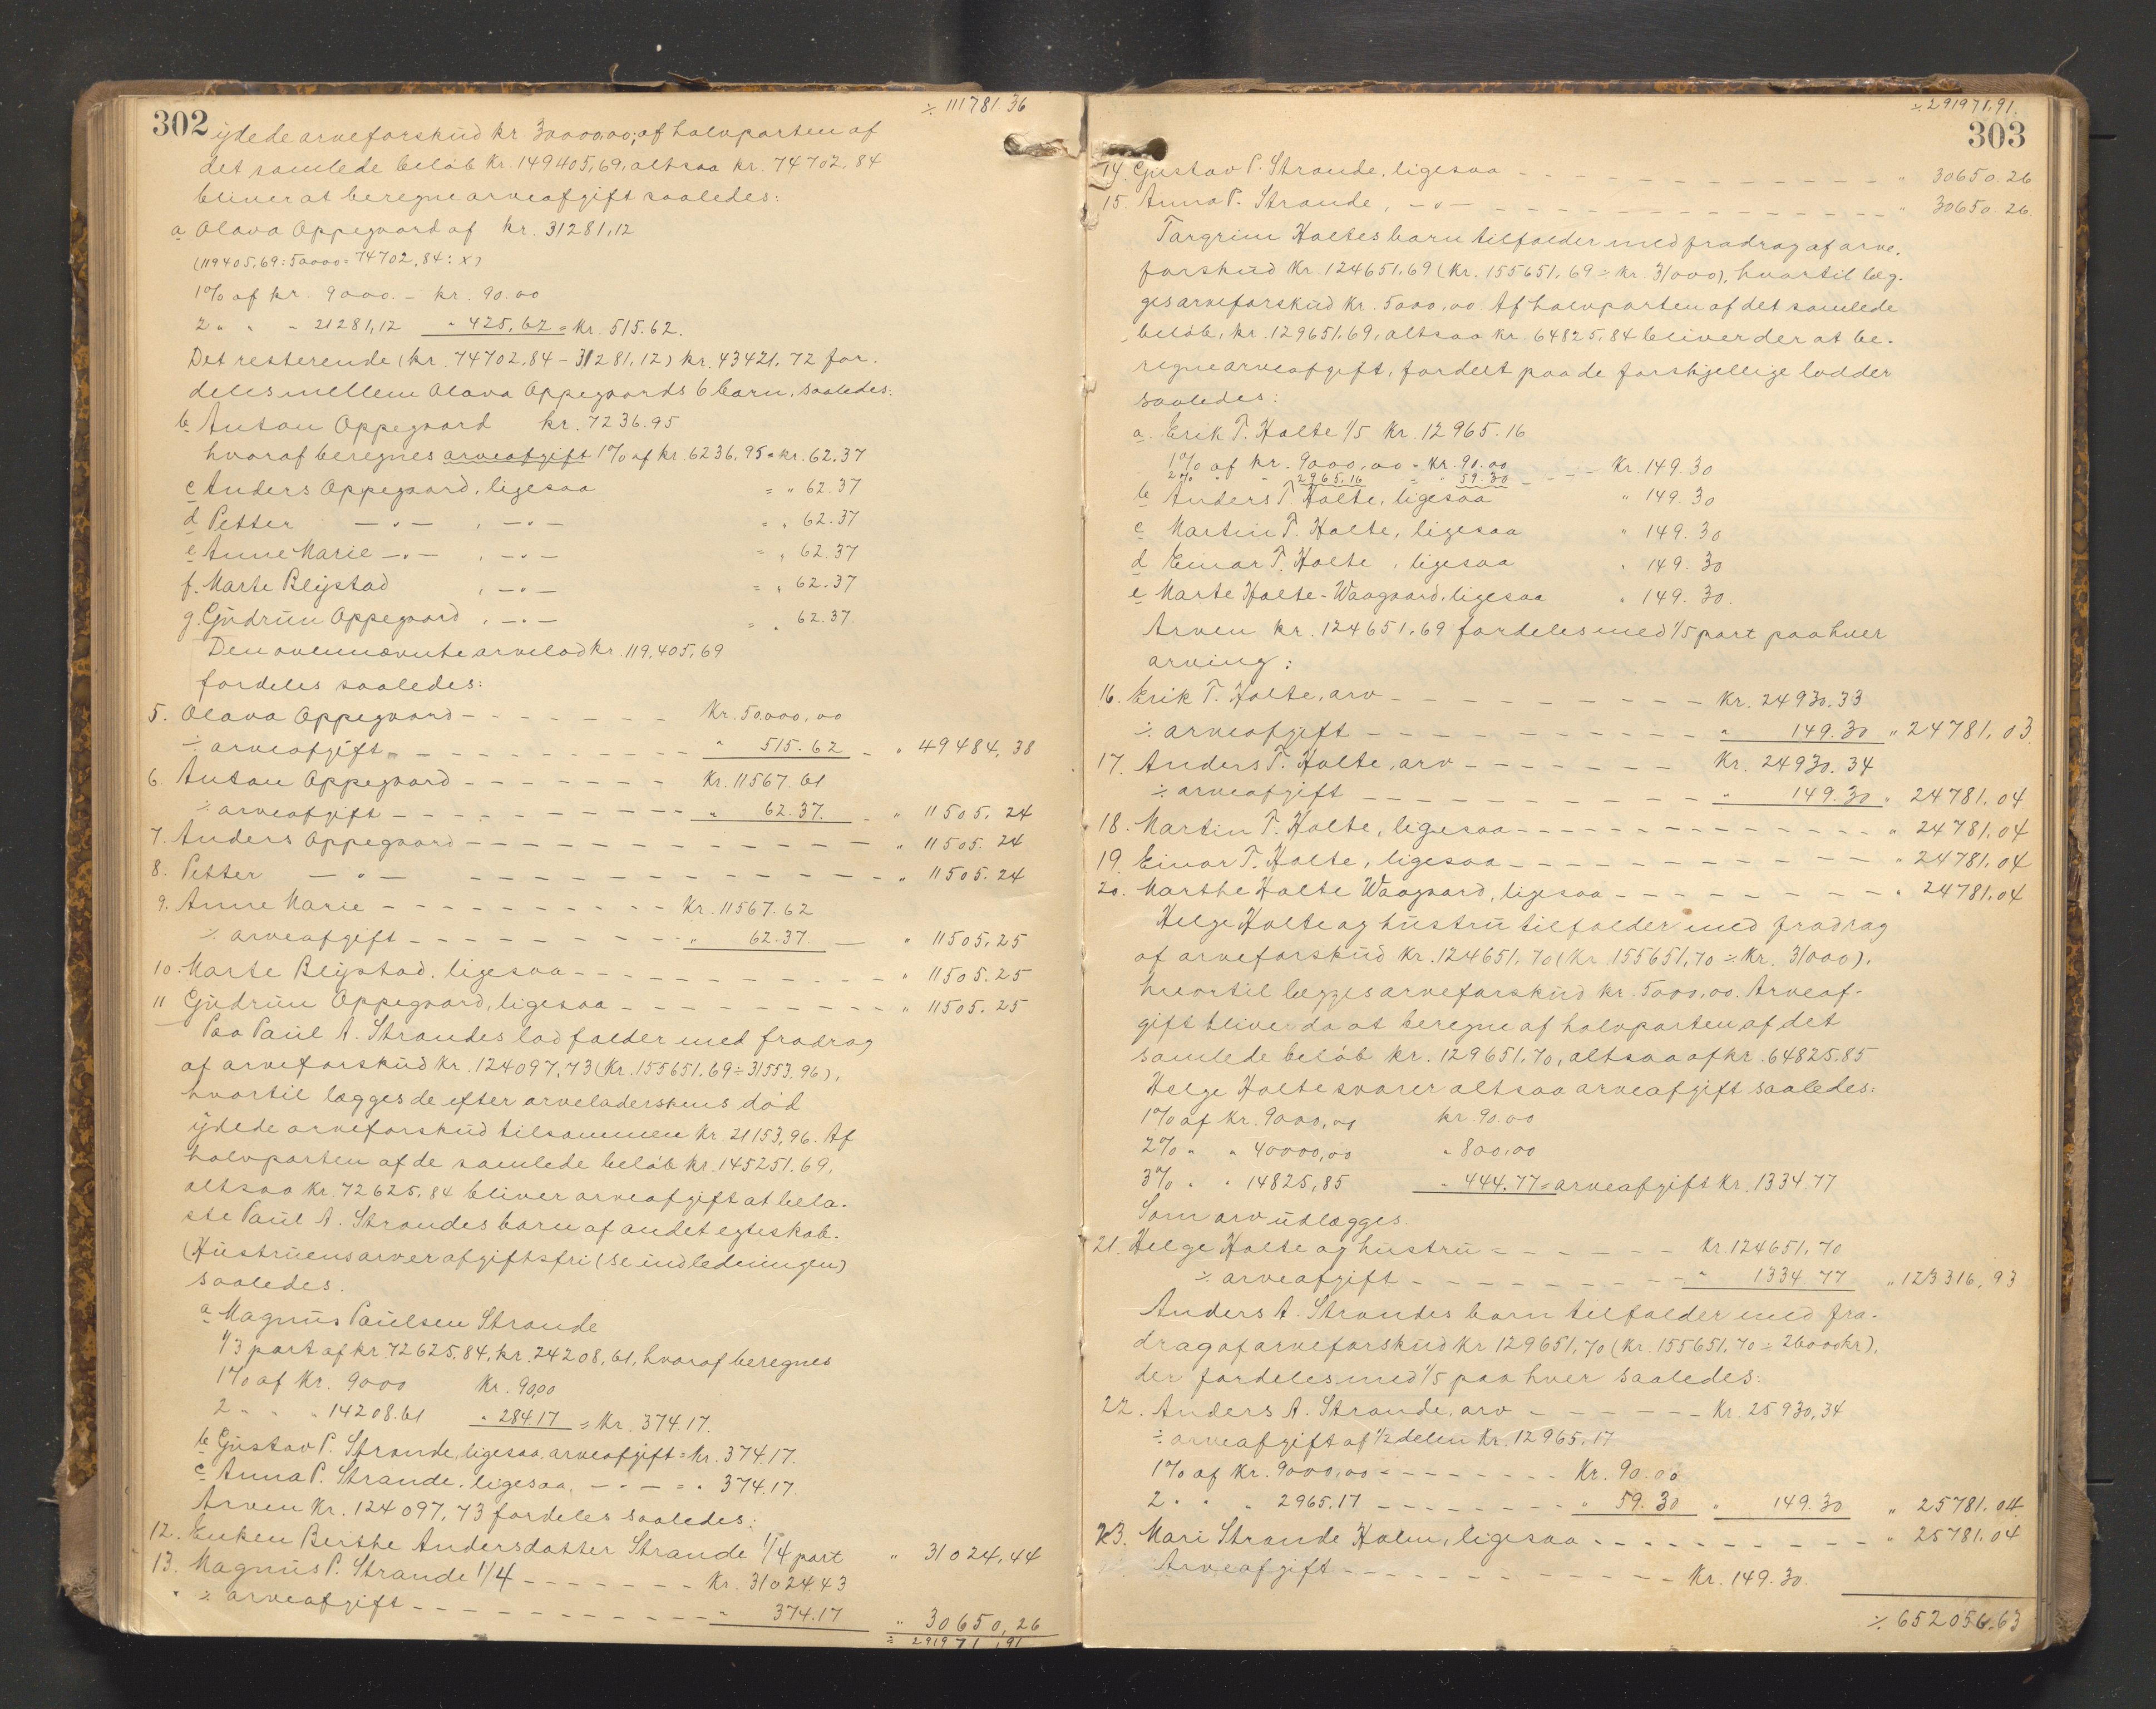 ÷ 111781.36
302
ydede arveforskud kr. 30000,00; af halvparten af
det samlede beløb kr. 149405,69, altsaa kr. 74702,84
bliver at beregne arveafgift saaledes:
a Olava Oppegaard af kr. 31281,12
(119405,69:50000=74702,84:x)
1% af kr. 9000.- kr. 90.00
2 " " " 21281,12 " 425,62 = kr. 515.62.
Det resterende (kr. 74702,84 - 31281,12) kr. 43421,72 for-
deles mellem Olava Oppegaards 6 barn, saaledes:
b Anton Oppegaard kr. 7236.95
hvoraf beregnes arveafgift 1% af kr. 6236,95 = kr. 62.37
c Anders Oppegaard, ligesaa = " 62.37
d Petter —"— , —"— = " 62.37
e Anne Marie —"— , —"— = " 62.37
f. Marte Blystad , —"— = " 62.37
g. Gudrun Oppegaard , —"— = " 62.37
Den ovennævnte arvelod kr. 119.405,69
fordeles saaledes:
5. Olava Oppegaard - - - - - - - Kr. 50.000,00
÷ arveafgift - - - - - - - " 515.62 - " 49484,38
6 Anton Oppegaard - - - - - - - Kr. 11567.61
÷ arveafgift - - - - - - - " 62.37. - " 11505.24
7. Anders Oppegaard - - - - - - - " 11505.24
8. Petter —"— - - - - - - - " 11505.24
9. Anne Marie - - - - - - - Kr. 11567.62
÷ arveafgift - - - - - - - " 62.37. — " 11505,25
10. Marte Blystad, ligesaa - - - - - - - " 11505.25
11 Gudrun Oppegaard, ligesaa - - - - - - - " 11505.25
Paa Paul A. Strandes lod falder med fradrag
af arveforskud kr. 124097,73 (Kr. 155651.69 ÷ 31553.96),
hvortil lægges de efter arveladerskens død
ydede arveforskud tilsammen kr. 21153,96. Af
halvparten af de samlede beløb kr. 145251.69,
altsaa kr. 72625,84 bliver arveafgift at bela-
ste Paul A. Strandes barn af andet egteskab.
(Hustruens arv er afgiftsfri (se indledningen)
saaledes.
a Magnus Paulsen Strande
1/3 part af kr. 72625,84, kr. 24208,61, hvoraf beregnes
1% af Kr. 9000 Kr. 90,00
2 " " " 14208.61 " 284.17 = Kr. 374.17.
b Gustav P. Strande, ligesaa, arveafgift = Kr. 374.17.
c Anna P. Strande, ligesaa, —"— = " 374.17.
Arven Kr. 124097,73 fordeles saaledes:
12. Enken Berthe Andersdatter Strande 1/4 part " 31024,44
13. Magnus P. Strande 1/4 - - - - - - - Kr. 31024.43
" ÷ arveafgift - - - - - - - " 374.17 " 30650,26
÷ 291971,91
÷ 291971,91.
303
14. Gustav P. Strande, ligesaa - - - - - - - " 30650.26
15. Anna P. Strande, —"— - - - - - - - " 30650.26.
Targrim Holtes barn tilfalder med fradrag af arve-
forskud Kr. 124651,69 (Kr. 155651,69 ÷ kr. 31000), hvortil læg-
ges arveforskud Kr. 5000,00. Af halvparten af det samlede
beløb, kr. 129651.69, altsaa kr. 64825,84 bliver der at be-
regne arveafgift, fordelt paa de forskjellige lodder
saaledes:
a. Erik T. Holte 1/5 Kr. 12965.16
1% af kr. 9000,00 = Kr. 90.00 - - - Kr. 149.30
2% " " 2965,16 = " 59.30 - - -
b Anders T. Holte, ligesaa " 149.30
c Martin T. Holte, ligesaa " 149.30
d Einar T. Holte, ligesaa " 149.30
e Marte Holte-Waagaard, ligesaa " 149.30.
Arven kr. 124651.69 fordeles med 1/5 part paa hver
arving:
16. Erik T. Holte, arv - - - - - - - Kr. 24930.33
÷ arveafgift - - - - - - - " 149.30 " 24781,03.
17. Anders T. Holte, arv - - - - - - - Kr. 24930.34
÷ arveafgift - - - - - - - " 149.30 " 24781,04
18. Martin T. Holte, ligesaa - - - - - - - " 24781,04
19. Einar T. Holte, ligesaa - - - - - - - " 24781,04
20. Marthe Holte Waagaard, ligesaa - - - - - - - " 24781,04
Helge Holte og hustru tilfalder med fradrag
af arveforskud Kr. 124651,70 (Kr. 155651,70 ÷ Kr. 31000),
hvortil lægges arveforskud kr. 5000,00. Arveaf-
gift bliver da at beregne af halvparten af det
samlede beløb kr. 129651,70, altsaa af kr. 64825.85
Helge Holte svarer altsaa arveafgift saaledes:
1% af Kr. 9000,00 kr. 90.00
2% " " 40000,00 " 800,00
3% " " 14825,85 " 444.77 = arveafgift Kr. 1334.77
Som arv udlægges
21. Helge Holte og hustru - - - - - - - Kr. 124651,70
÷ arveafgift - - - - - - - " 1334.77 " 123316,93
Anders A. Strandes barn tilfalder med fra-
drag af arveforskud Kr. 129651,70 (Kr. 155651,70 ÷ 26000 kr),
der fordeles med 1/5 paa hver saaledes:
22. Anders A. Strande, arv - - - - - - - Kr. 25930,34
÷ arveafgift af 1/2 delen Kr. 12965.17
1% af Kr. 9000,00 - - - - - - - Kr. 90.00
2 " " " 2965.17 - - - - - - - " 59.30 " 149.30 " 25781.04
23. Mari Strande Holm, ligesaa - - - - - - - " 25781.04
Arveafgift - - - - - - - Kr. 149.30.
÷ 652056.63